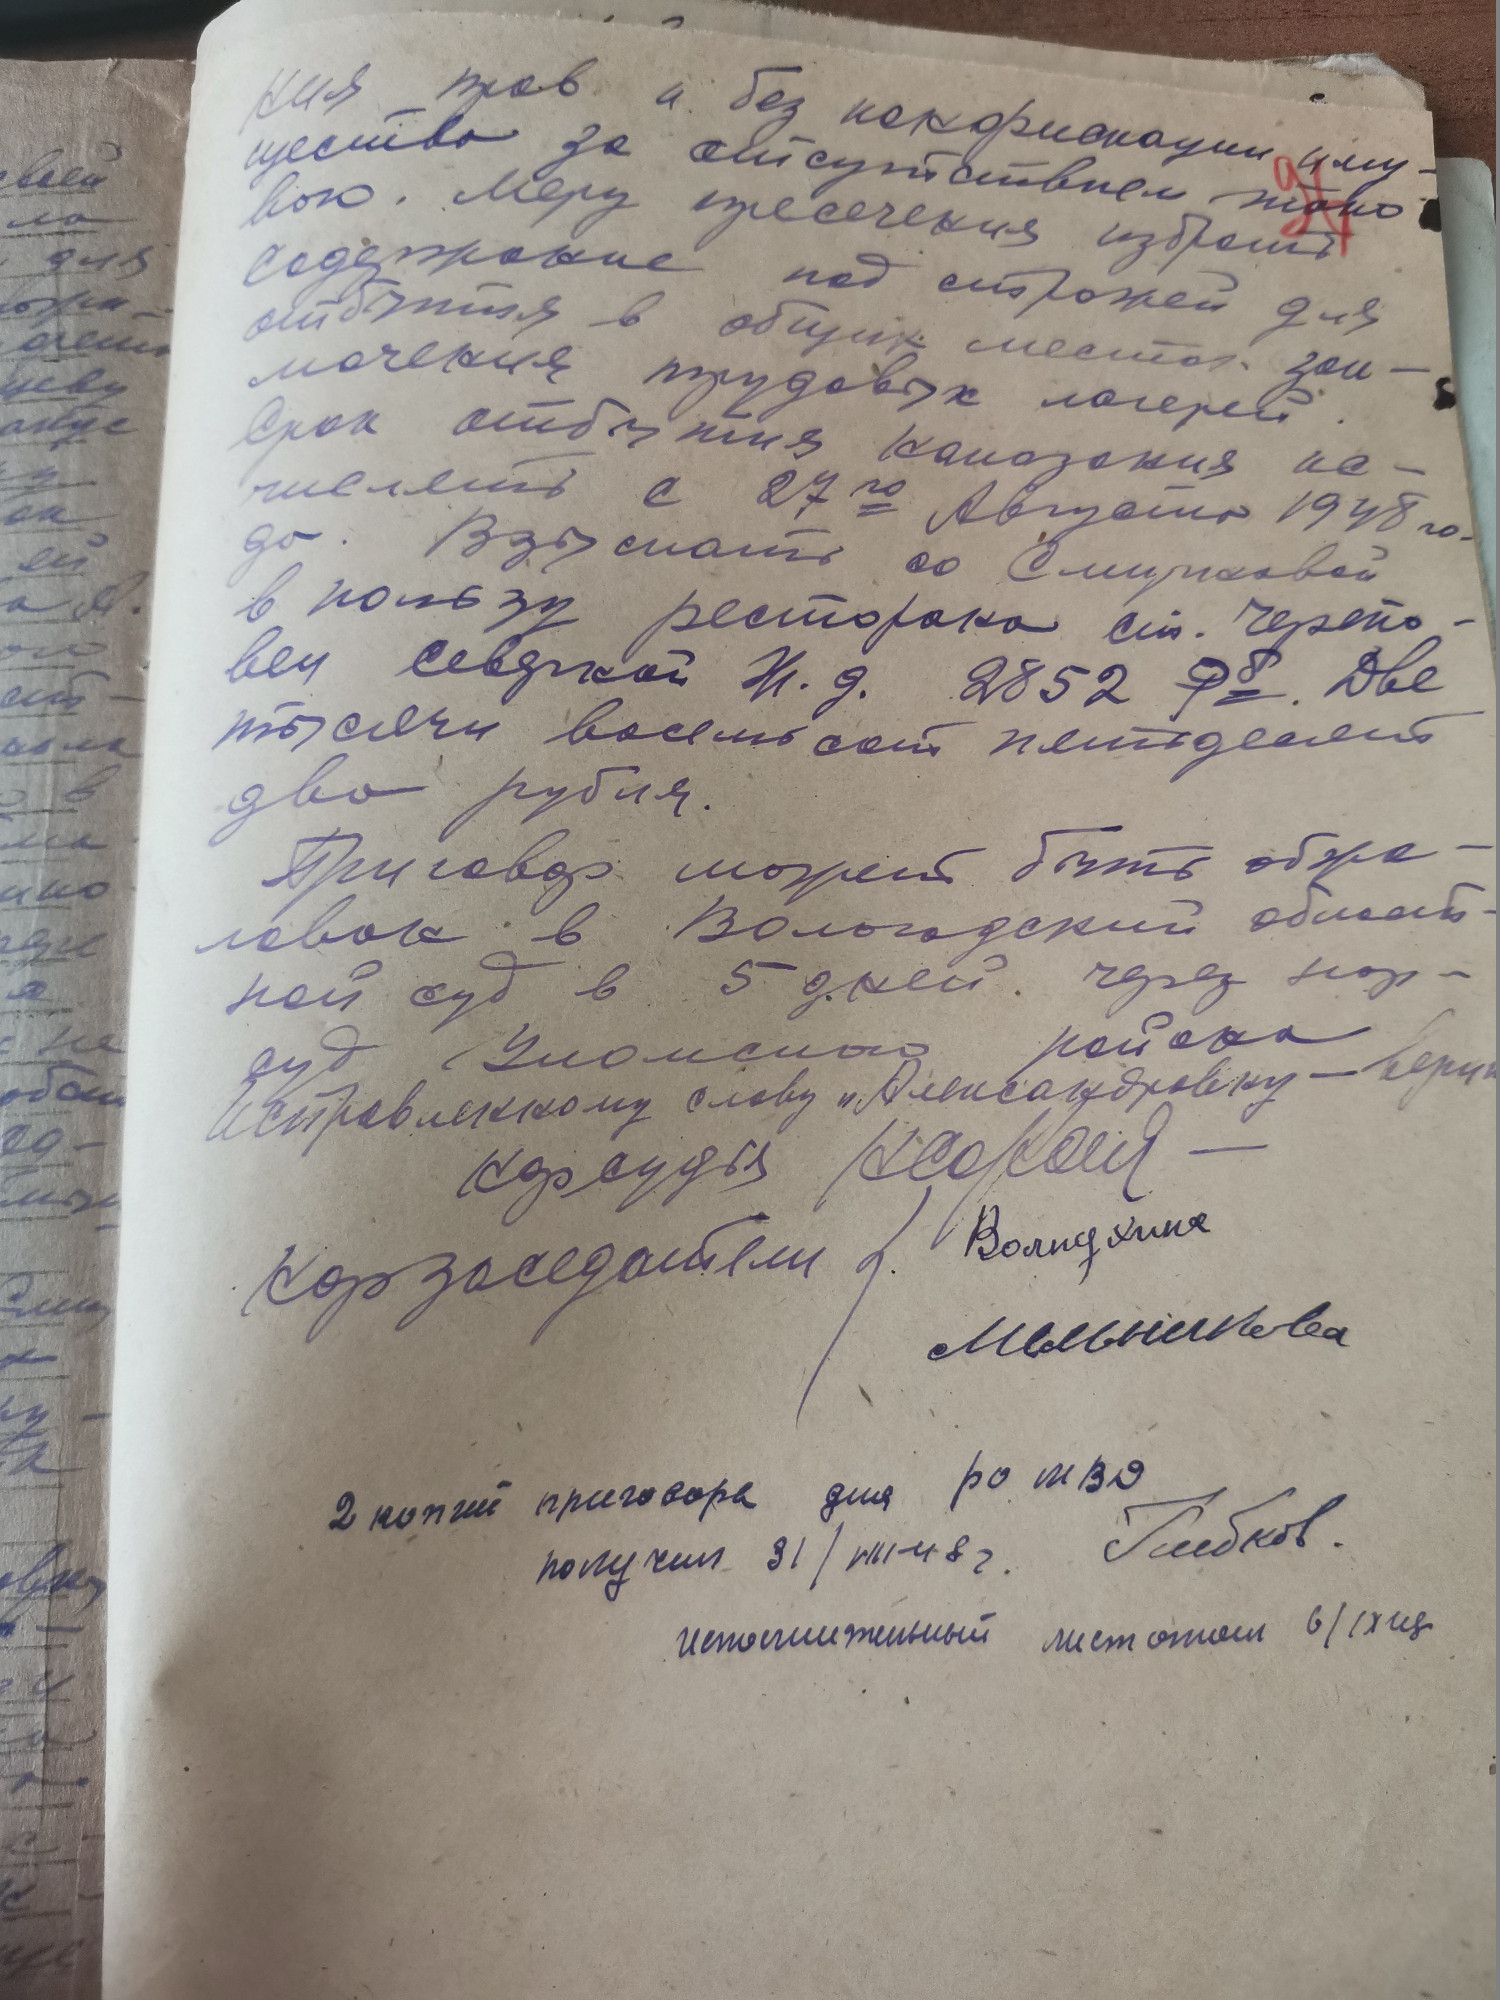 ния прав и без конфискации иму-
щества за отсутствием тако
вого. Меру пресечения избрать
содержание под стражей для
отбытия в общих местах заклю-
чения трудовых лагерей.
Срок отбытия наказания ис-
числять с 27го Августа 1948 го-
да. Взыскать со Смирновой
в пользу ресторана ст. Черепо-
вец Северной Ж.д. 2852 р. Две
тысячи восемьсот пятьдесят
два рубля.
Приговор может быть обжа-
лован в Вологодский област-
ной суд в 5 дней через нар-
суд Уломского района
Исправленному слову „Александровну – верить
Нарсудья
Нарзаседатели
Мельникова
2 копии приговора для РО МВД
получил 31/VIII-48 г. Глебков.
исполнительный лист